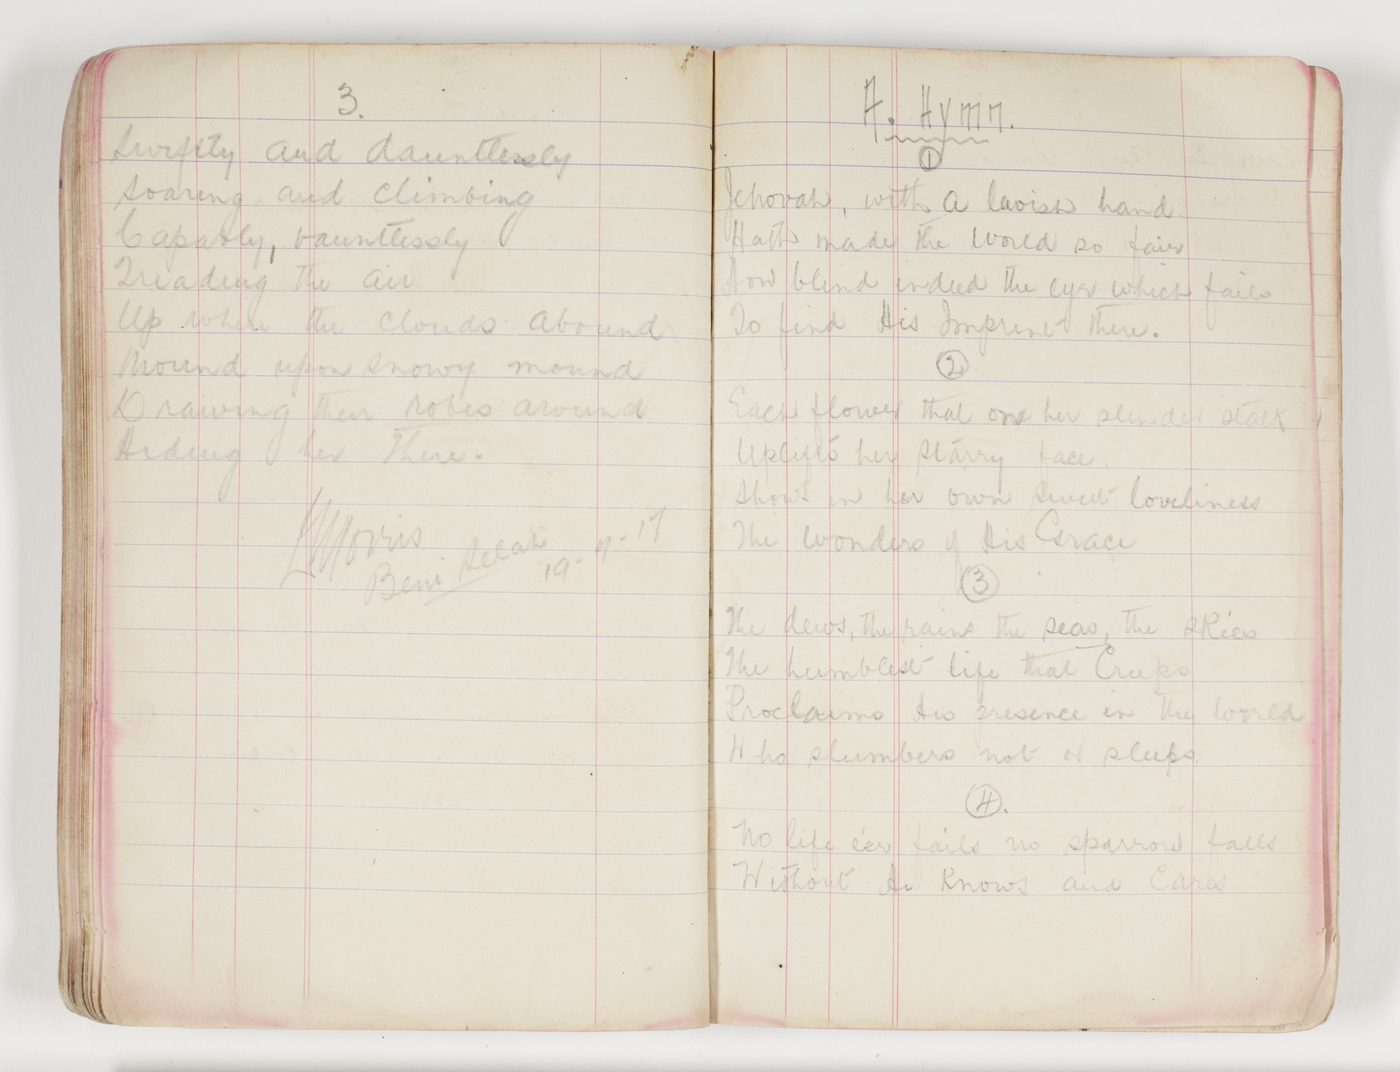 3.
Swiftly and dauntlessly
Soaring and climbing
Capably, vauntlessly
Treading the air
Up where the clouds abound
Mound upon snowy mound
Drawing their robes around
Hiding her there.
Morris
Beni Selah
19-7-17
A. Hymn.
1
Jehovah, with a lavish hand
Hath made the world so fair
How blind indeed the eye which fails
To find His Imprint there.
2
Each flower that on her slender stalk
Uplifts her starry face.
Shows in her own sweet loveliness
The wonders of His Grace
3
The dews, the rains the seas, the skies
The humblest life that Creeps
Proclaims His presence in the world
Who slumbers not or sleeps
4.
No life e'er fails no sparrow falls
Without He Knows and Cares